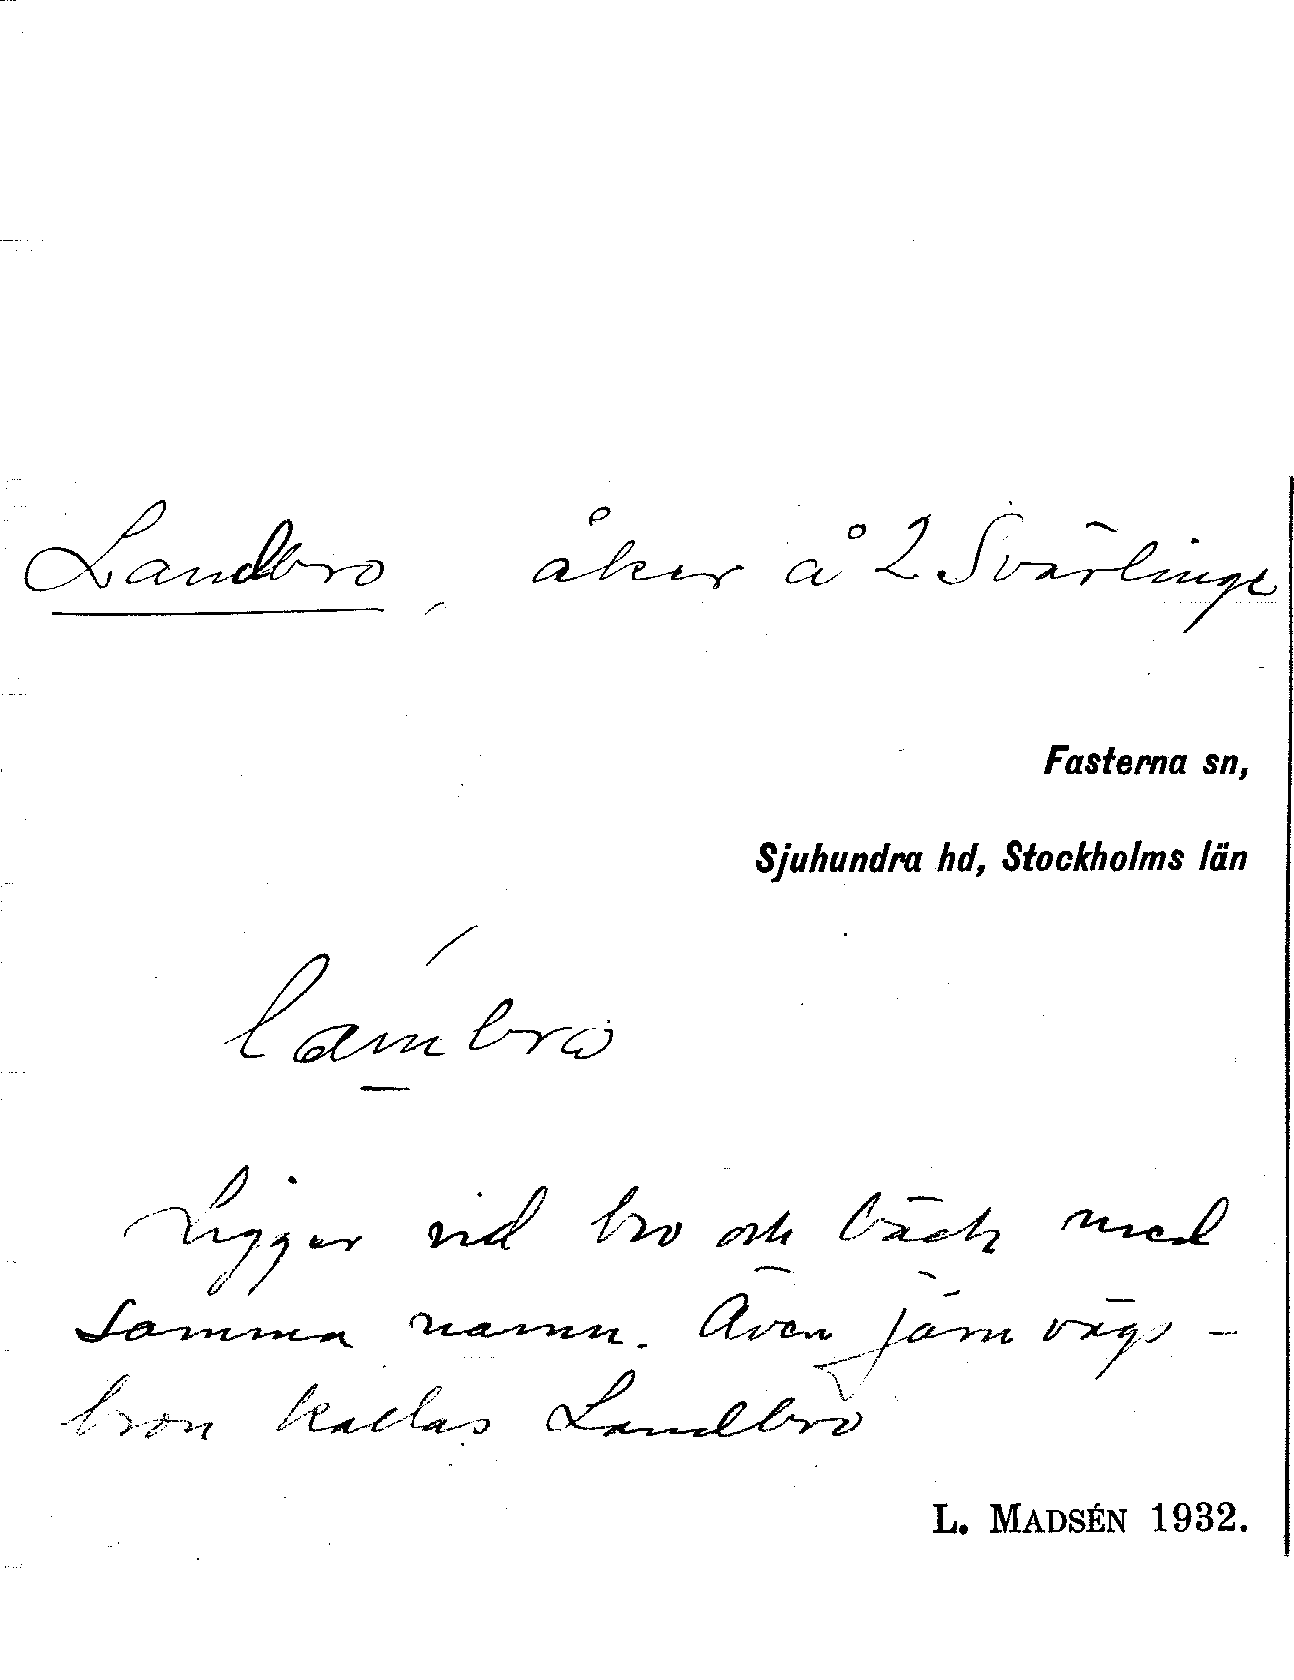 Landbro, åker å 2 Svärlinge
Fasterna sn,
Sjuhundra hd, Stockholms län
lambro
Ligger vid bro och bäck med
samma namn. Även järnvägs-
bron kallas Landbro
L. MADSÉN 1932.